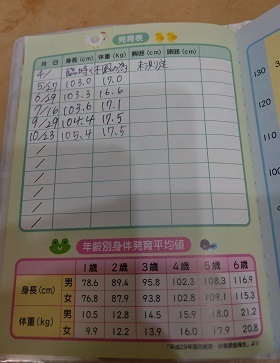 発育表
月 日 身長(cm) 体重(kg) 胸囲(cm) 頭囲(cm)
4/ 臨時休園の為 未測定
5/27 103.0 17.0
6/29 103.3 16.6
7/16 103.6 17.1
9/29 104.4 17.5
10/23 105.4 17.5
/
/
/
/
/
年齢別身体発育平均値
1歳 2歳 3歳 4歳 5歳 6歳
身長(cm) 男 78.6 89.4 95.8 102.3 108.3 116.9
女 76.8 87.9 93.8 102.8 109.1 115.3
体重(kg) 男 10.5 12.8 14.5 15.9 18.9 21.9
女 9.9 12.2 13.9 16.0 17.9 20.8
130
120
110
100
90